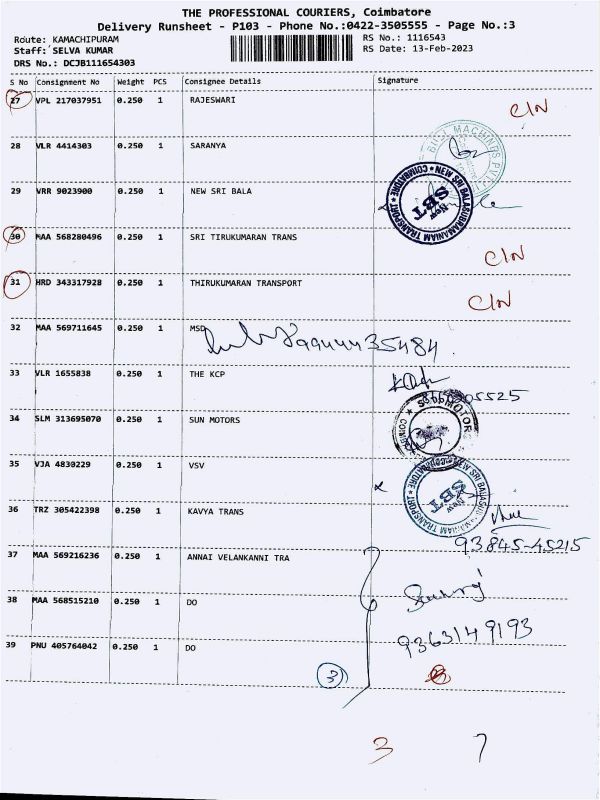 THE PROFESSIONAL COURIERS, Coimbatore
Delivery Runsheet - P103 - Phone No.:0422-3505555 - Page No.:3
Route: KAMACHIPURAM
RS No.: 1116543
Staff: SELVA KUMAR
RS Date: 13-Feb-2023
DRS No.: DCJB111654303
S No Consignment No Weight PCS Consignee Details Signature
27 VPL 217037951 0.250 1 RAJESWARI C/N
28 VLR 4414303 0.250 1 SARANYA
29 VRR 9023900 0.250 1 NEW SRI BALA
NEW SRI BALASUBRAMANIAM TRANSPORT COIMBATORE
New
SBT
30 MAA 568280496 0.250 1 SRI TIRUKUMARAN TRANS C/N
31 HRD 343317928 0.250 1 THIRUKUMARAN TRANSPORT C/N
32 MAA 569711645 0.250 1 MSD
33 VLR 1655838 0.250 1 THE KCP
34 SLM 313695070 0.250 1 SUN MOTORS
35 VJA 4830229 0.250 1 VSV
New
SBT
36 TRZ 305422398 0.250 1 KAVYA TRANS
93845-45215
37 MAA 569216236 0.250 1 ANNAI VELANKANNI TRA
38 MAA 568515210 0.250 1 DO
9363149193
39 PNU 405764042 0.250 1 DO
3
3 7